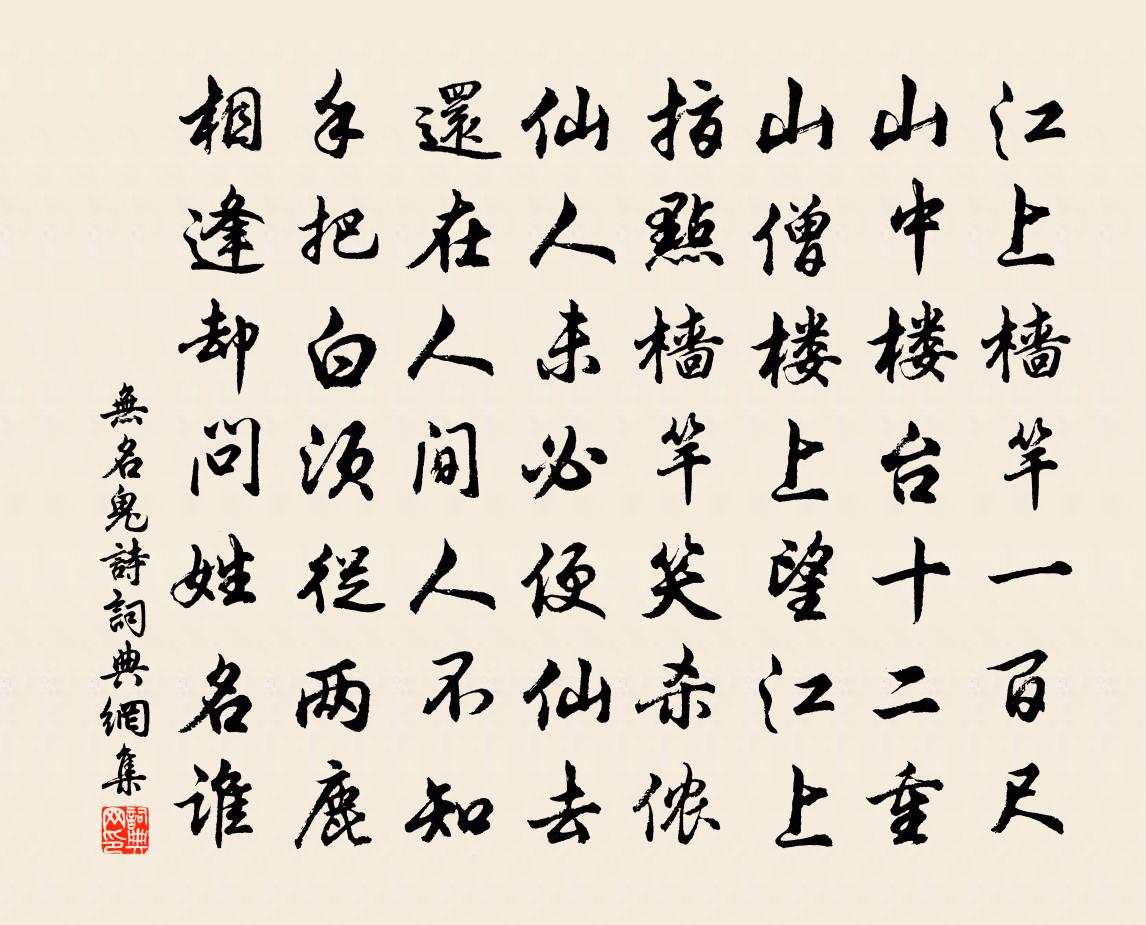 江上樯竿一百尺
山中楼台十二重
山僧楼上望江上
指點樯竿笑杀侬
仙人未必便仙去
還在人间人不知
手把白须从两鹿
相逢却问姓名谁
無名鬼詩詞典網集
詞典网印